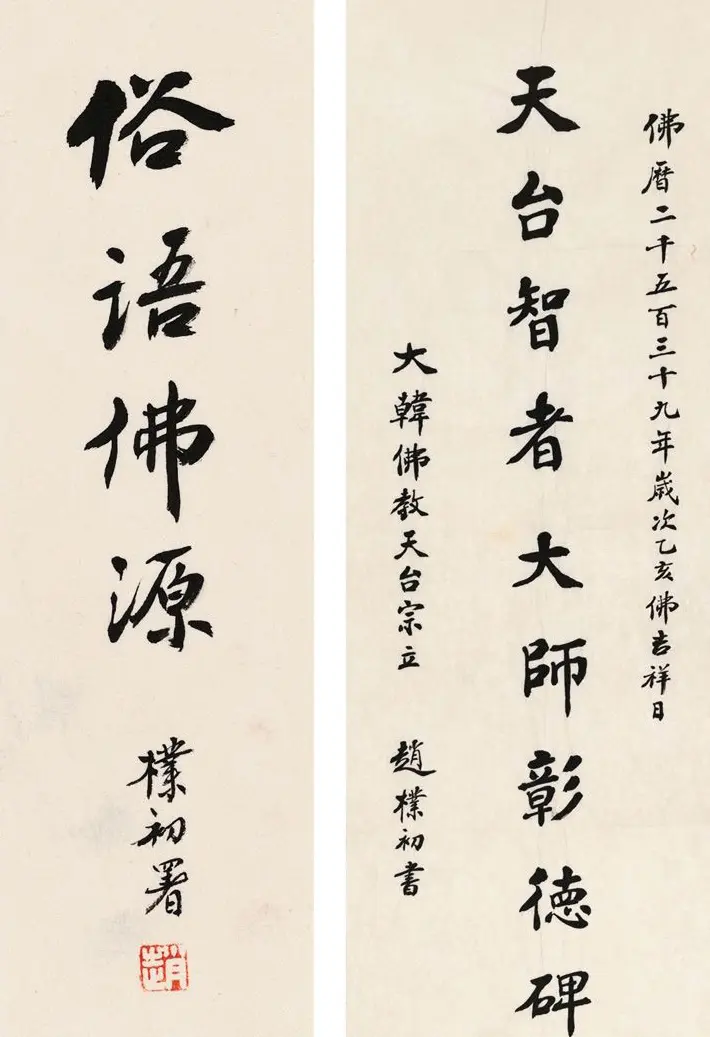 佛曆二千五百三十九年歲次乙亥佛吉祥日
天台智者大師彰德碑
大韓佛教天台宗立 趙樸初書
俗语佛源
樸初署
趙